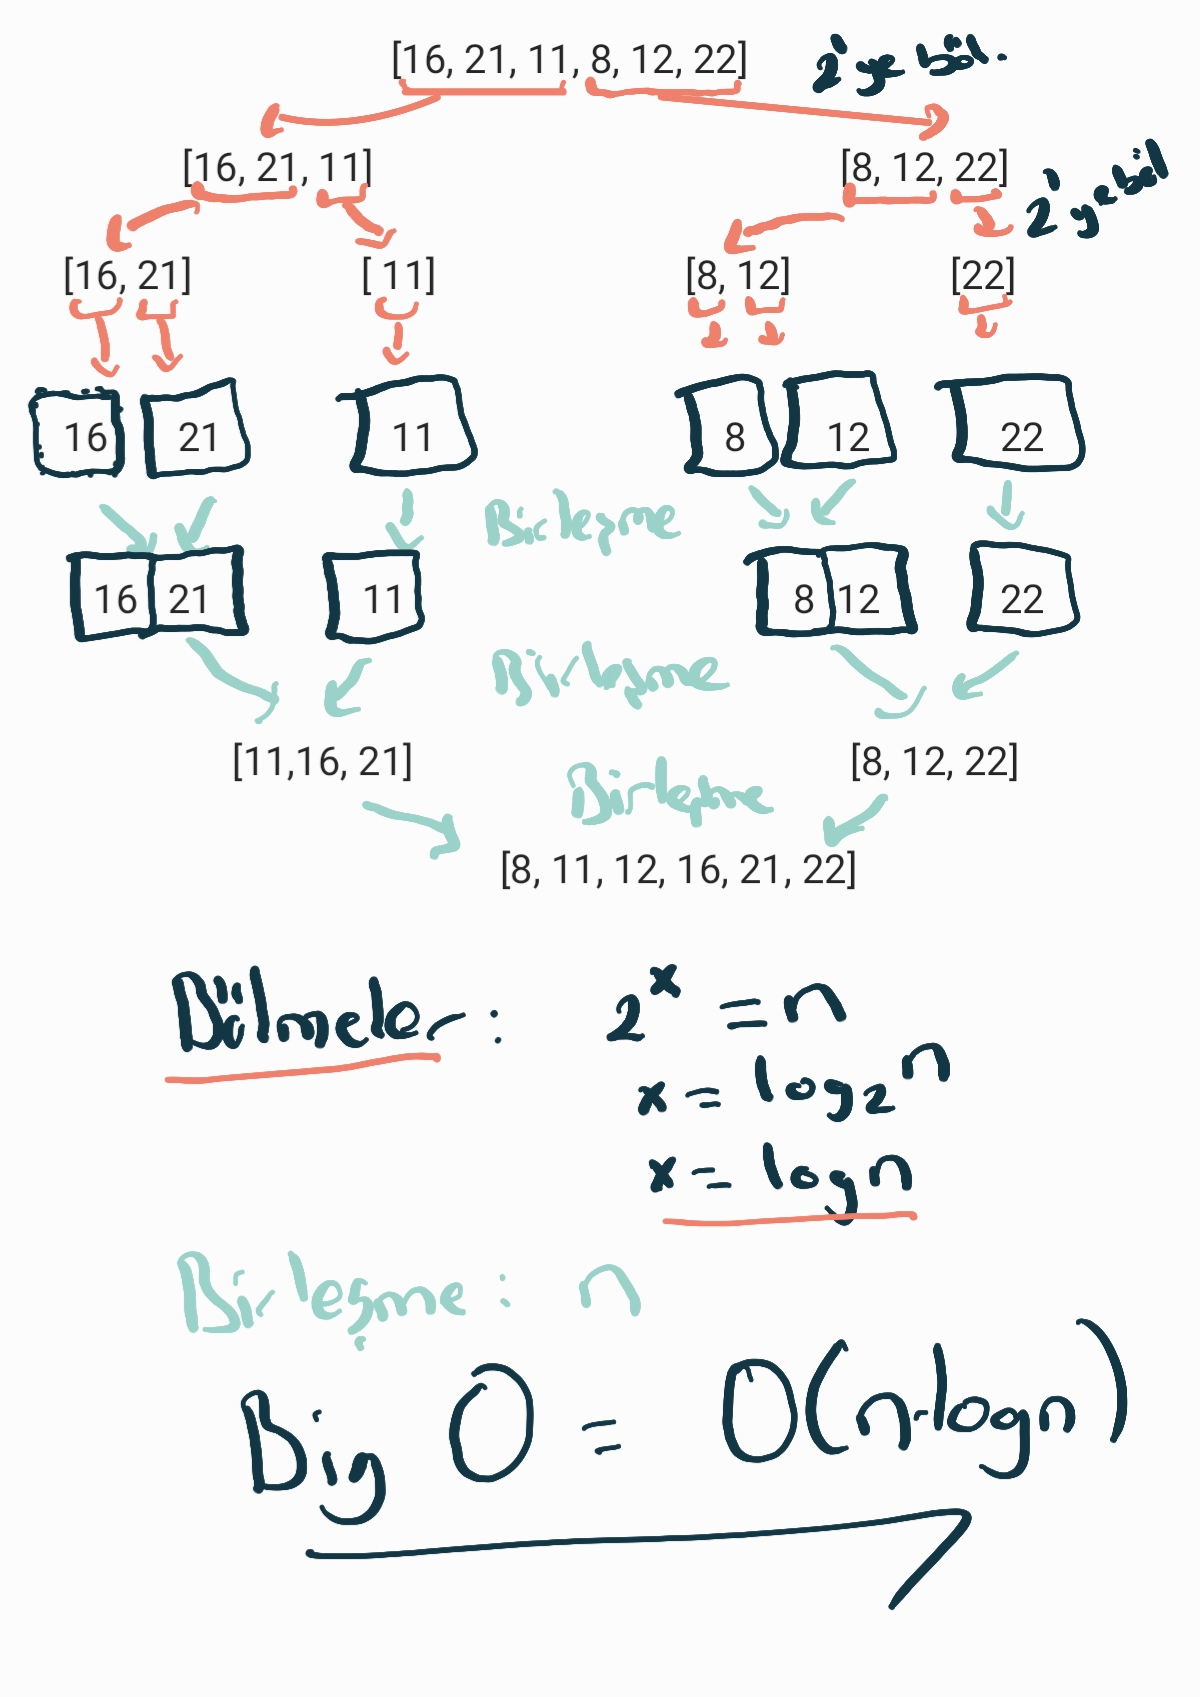 [16, 21, 11, 8, 12, 22] 2'ye böl.
[16, 21, 11] [8, 12, 22] 2'ye böl
[16, 21] [ 11] [8, 12] [22]
16 21 11 8 12 22
Birleşme
16 21 11 8 12 22
Birleşme
[11,16, 21] [8, 12, 22]
Birleşme
[8, 11, 12, 16, 21, 22]
Bölmeler : 2^x = n
x = log₂n
x = logn
Birleşme : n
Big O = O(n.logn)